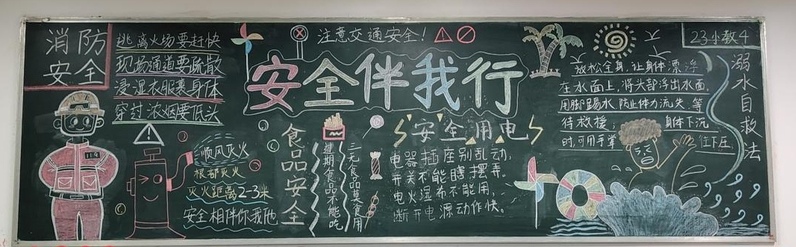 消防
安全
逃离火场要赶快
现场通道要疏散
浸湿衣服裹身体
穿过浓烟要低头
119
顺风灭火
根部灭火
灭火距离2-3米
安全相伴你我他
注意交通安全!
安全伴我行
食品安全
过期食品不能吃
三无食品莫食用
安全用电
电器插座别乱动,
开关不能瞎摆弄。
电火湿布不能用,
断开电源动作快。
23小教4
溺水自救法
放松全身,让身体漂浮
在水面上,将头部浮出水面,
用脚踢水,防止体力流失,等
待救援; 身体下沉
时,可用手掌 向下压。